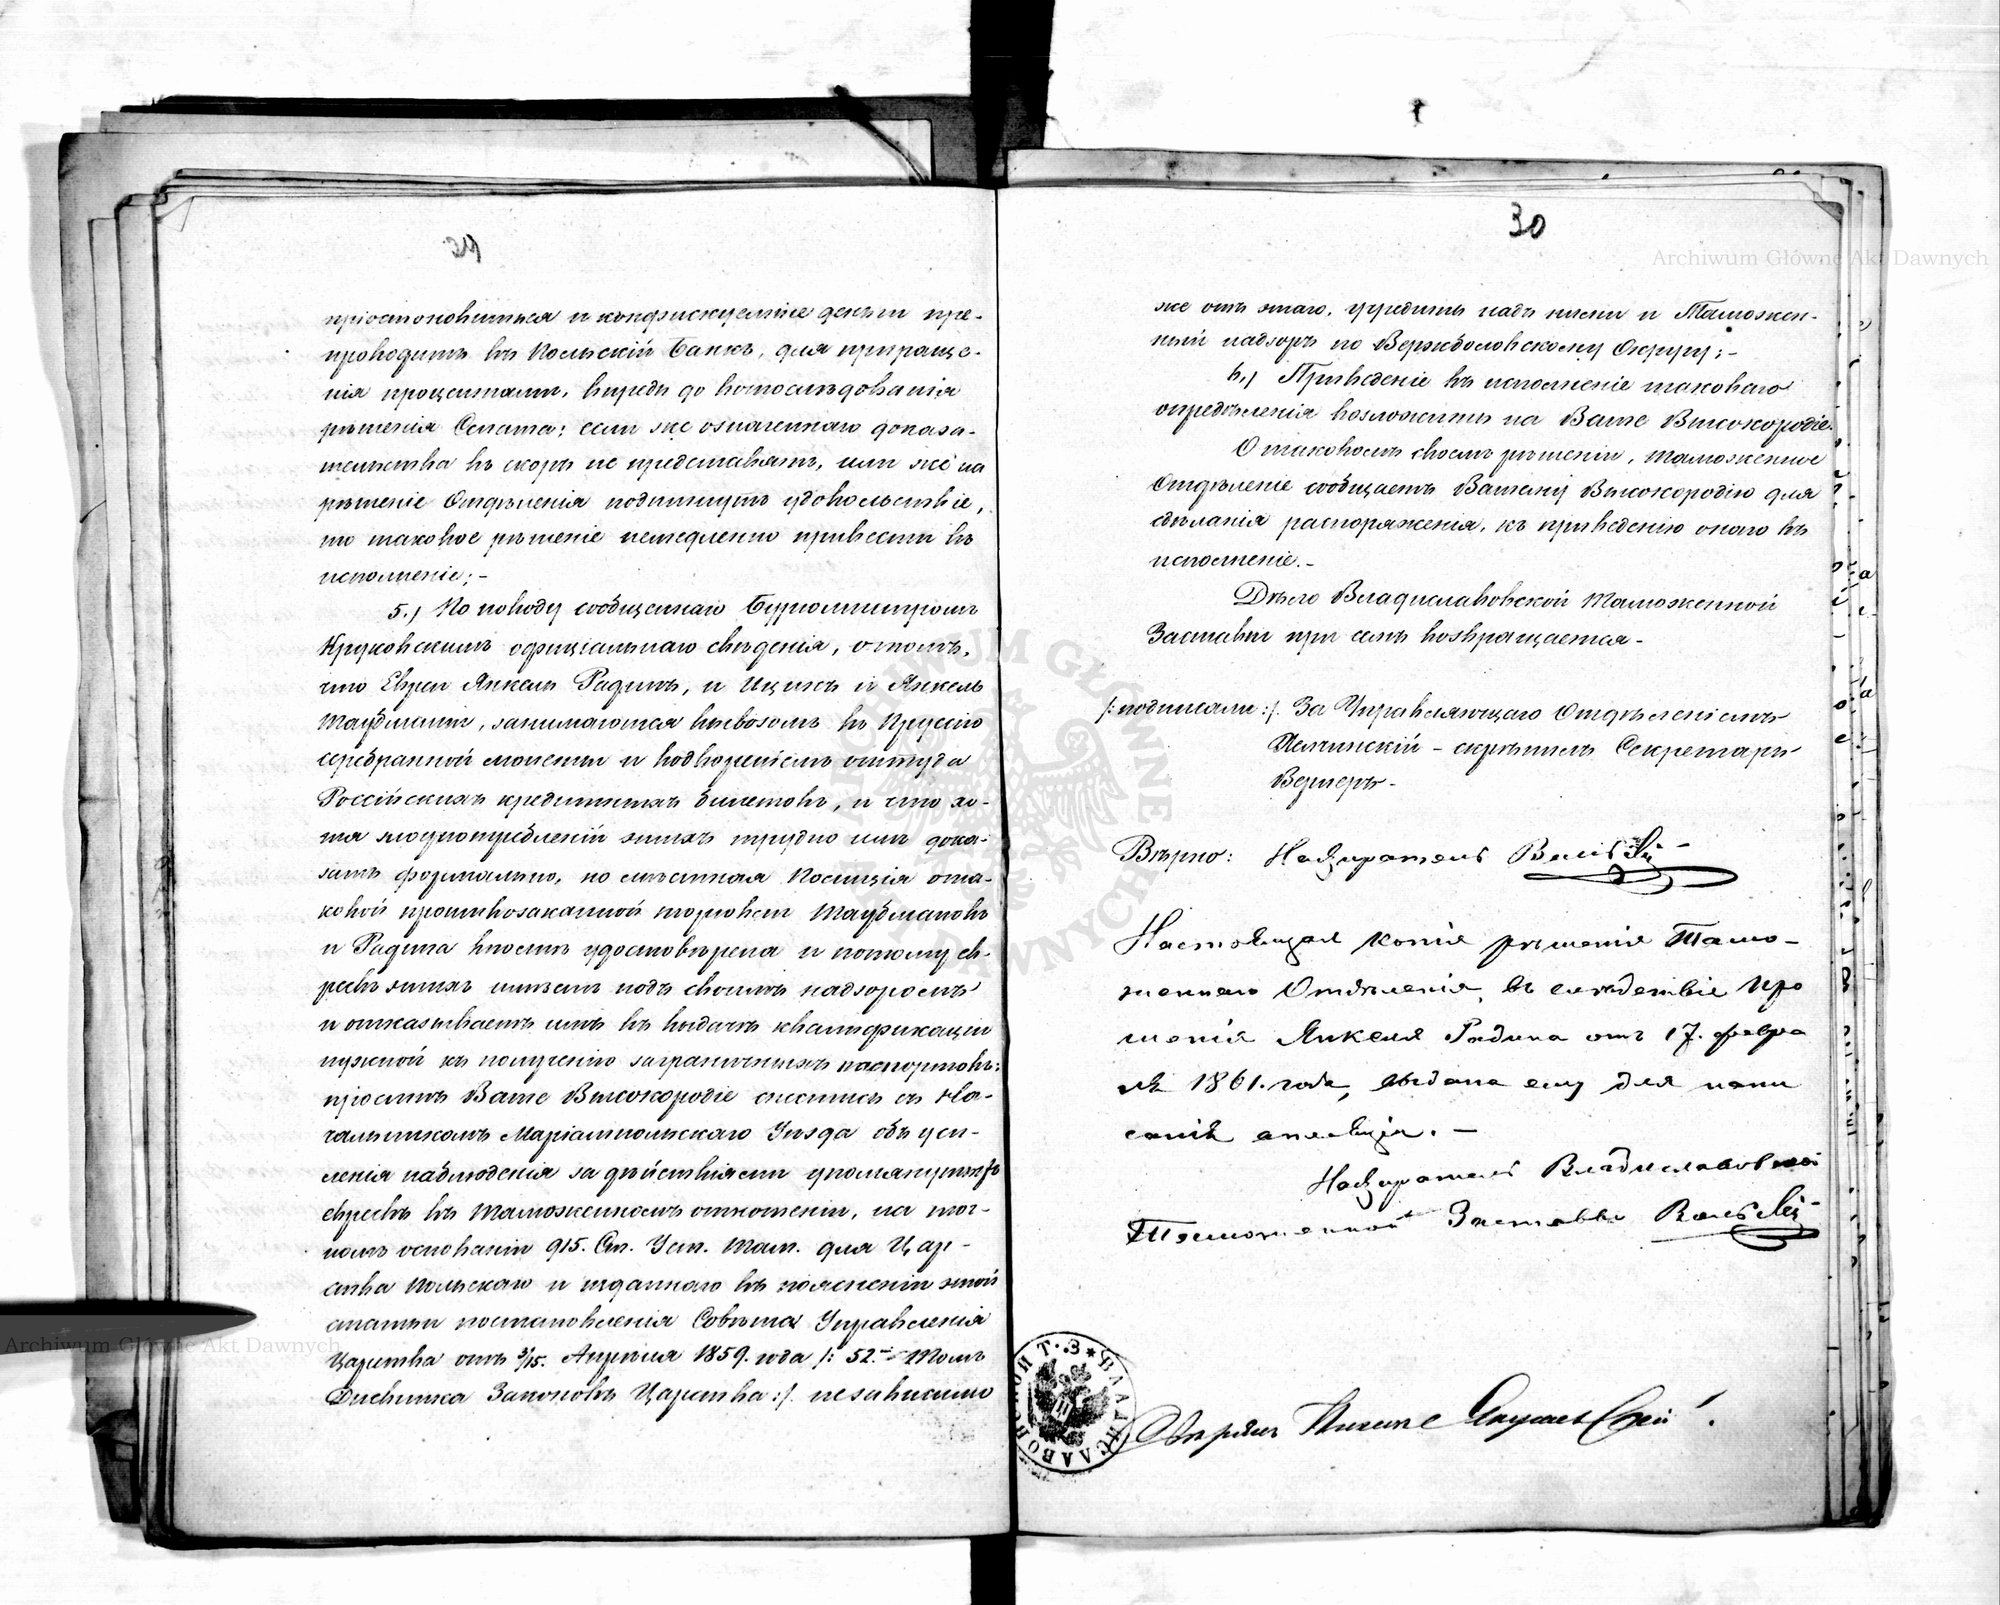 пріостановиться и конфискуемые деньги пре-
проводить въ Польскій Банкъ, для прираще-
нія процентами, впредь до воспослѣдованія
рѣшенія Сената; если же означеннаго доказа-
тельства въ скорѣ не представятъ, или же на
рѣшеніе Отдѣленія подпишутъ удовольствіе,
то таковое рѣшеніе немедленно привести въ
исполненіе;-
5.) По поводу сообщеннаго Бургомистромъ
Круковскимъ офиціальнаго свѣденія, о томъ,
что Евреи Янкель Радинъ, и Ицикъ и Янкель
Таубманы, занимаются вывозомъ въ Пруссію
серебранной монеты и водвореніемъ оттуда
Россійскихъ кредитныхъ билетовъ, и что хо-
тя злоупотребленій этихъ трудно имъ дока-
зать формально, но мѣстная Полиція ота-
ковой противозаконной торговли Таубмановъ
и Радина вполнѣ удостовѣрена и потому ев-
реевъ этихъ имѣетъ подъ своимъ надзоромъ
и отказываетъ имъ въ выдачѣ квалификаціи
нужной къ полученію заграничныхъ паспортовъ;
просить Ваше Высокородіе снестись съ На-
чальникомъ Маріампольскаго Уѣзда объ уси-
леніи наблюденія за дѣйствіями упомянутыхъ
евреевъ въ Таможенномъ отношеніи, на точ-
номъ основаніи 915. Ст. Уст. Там. для Цар-
ства Польскаго и изданнаго въ поясненіи этой
статьи постановленія Совѣта Управленія
Царства отъ 3/15. Апрѣля 1859. года /: 52.- Томъ
Дневника Законовъ Царства :/. независимо
30
же отъ этаго, учредить надъ ними и Таможен-
ный надзоръ по Вержболовскому Округу;-
6.) Приведеніе въ исполненіе таковаго
опредѣленія возложить на Ваше Высокородіе.
О таковомъ своемъ рѣшеніи, таможенное
Отдѣленіе сообщаетъ Вашему Высокородію для
сдѣланія распоряженія, къ приведенію онаго въ
исполненіе.-
Дѣло Владиславовской Таможенной
Заставы при семъ возвращается.-
/: подписали :/. За Управляющаго Отдѣленіемъ
скрѣпилъ Секретарь
Вернеръ.-
Вѣрно: Надзиратель
Настоящая копія рѣшенія Тамо-
женнаго Отдѣленія, въ слѣдствіе про
шенія Янкеля Радина отъ 17. февра
ля 1861. года, выдана ему для напи
санія апеляціи.-
Надзиратель Владиславовской
Таможенной Заставы
Archiwum Główne Akt Dawnych
Archiwum Główne Akt Dawnych
ARCHIWUM GŁÓWNE AKT DAWNYCH